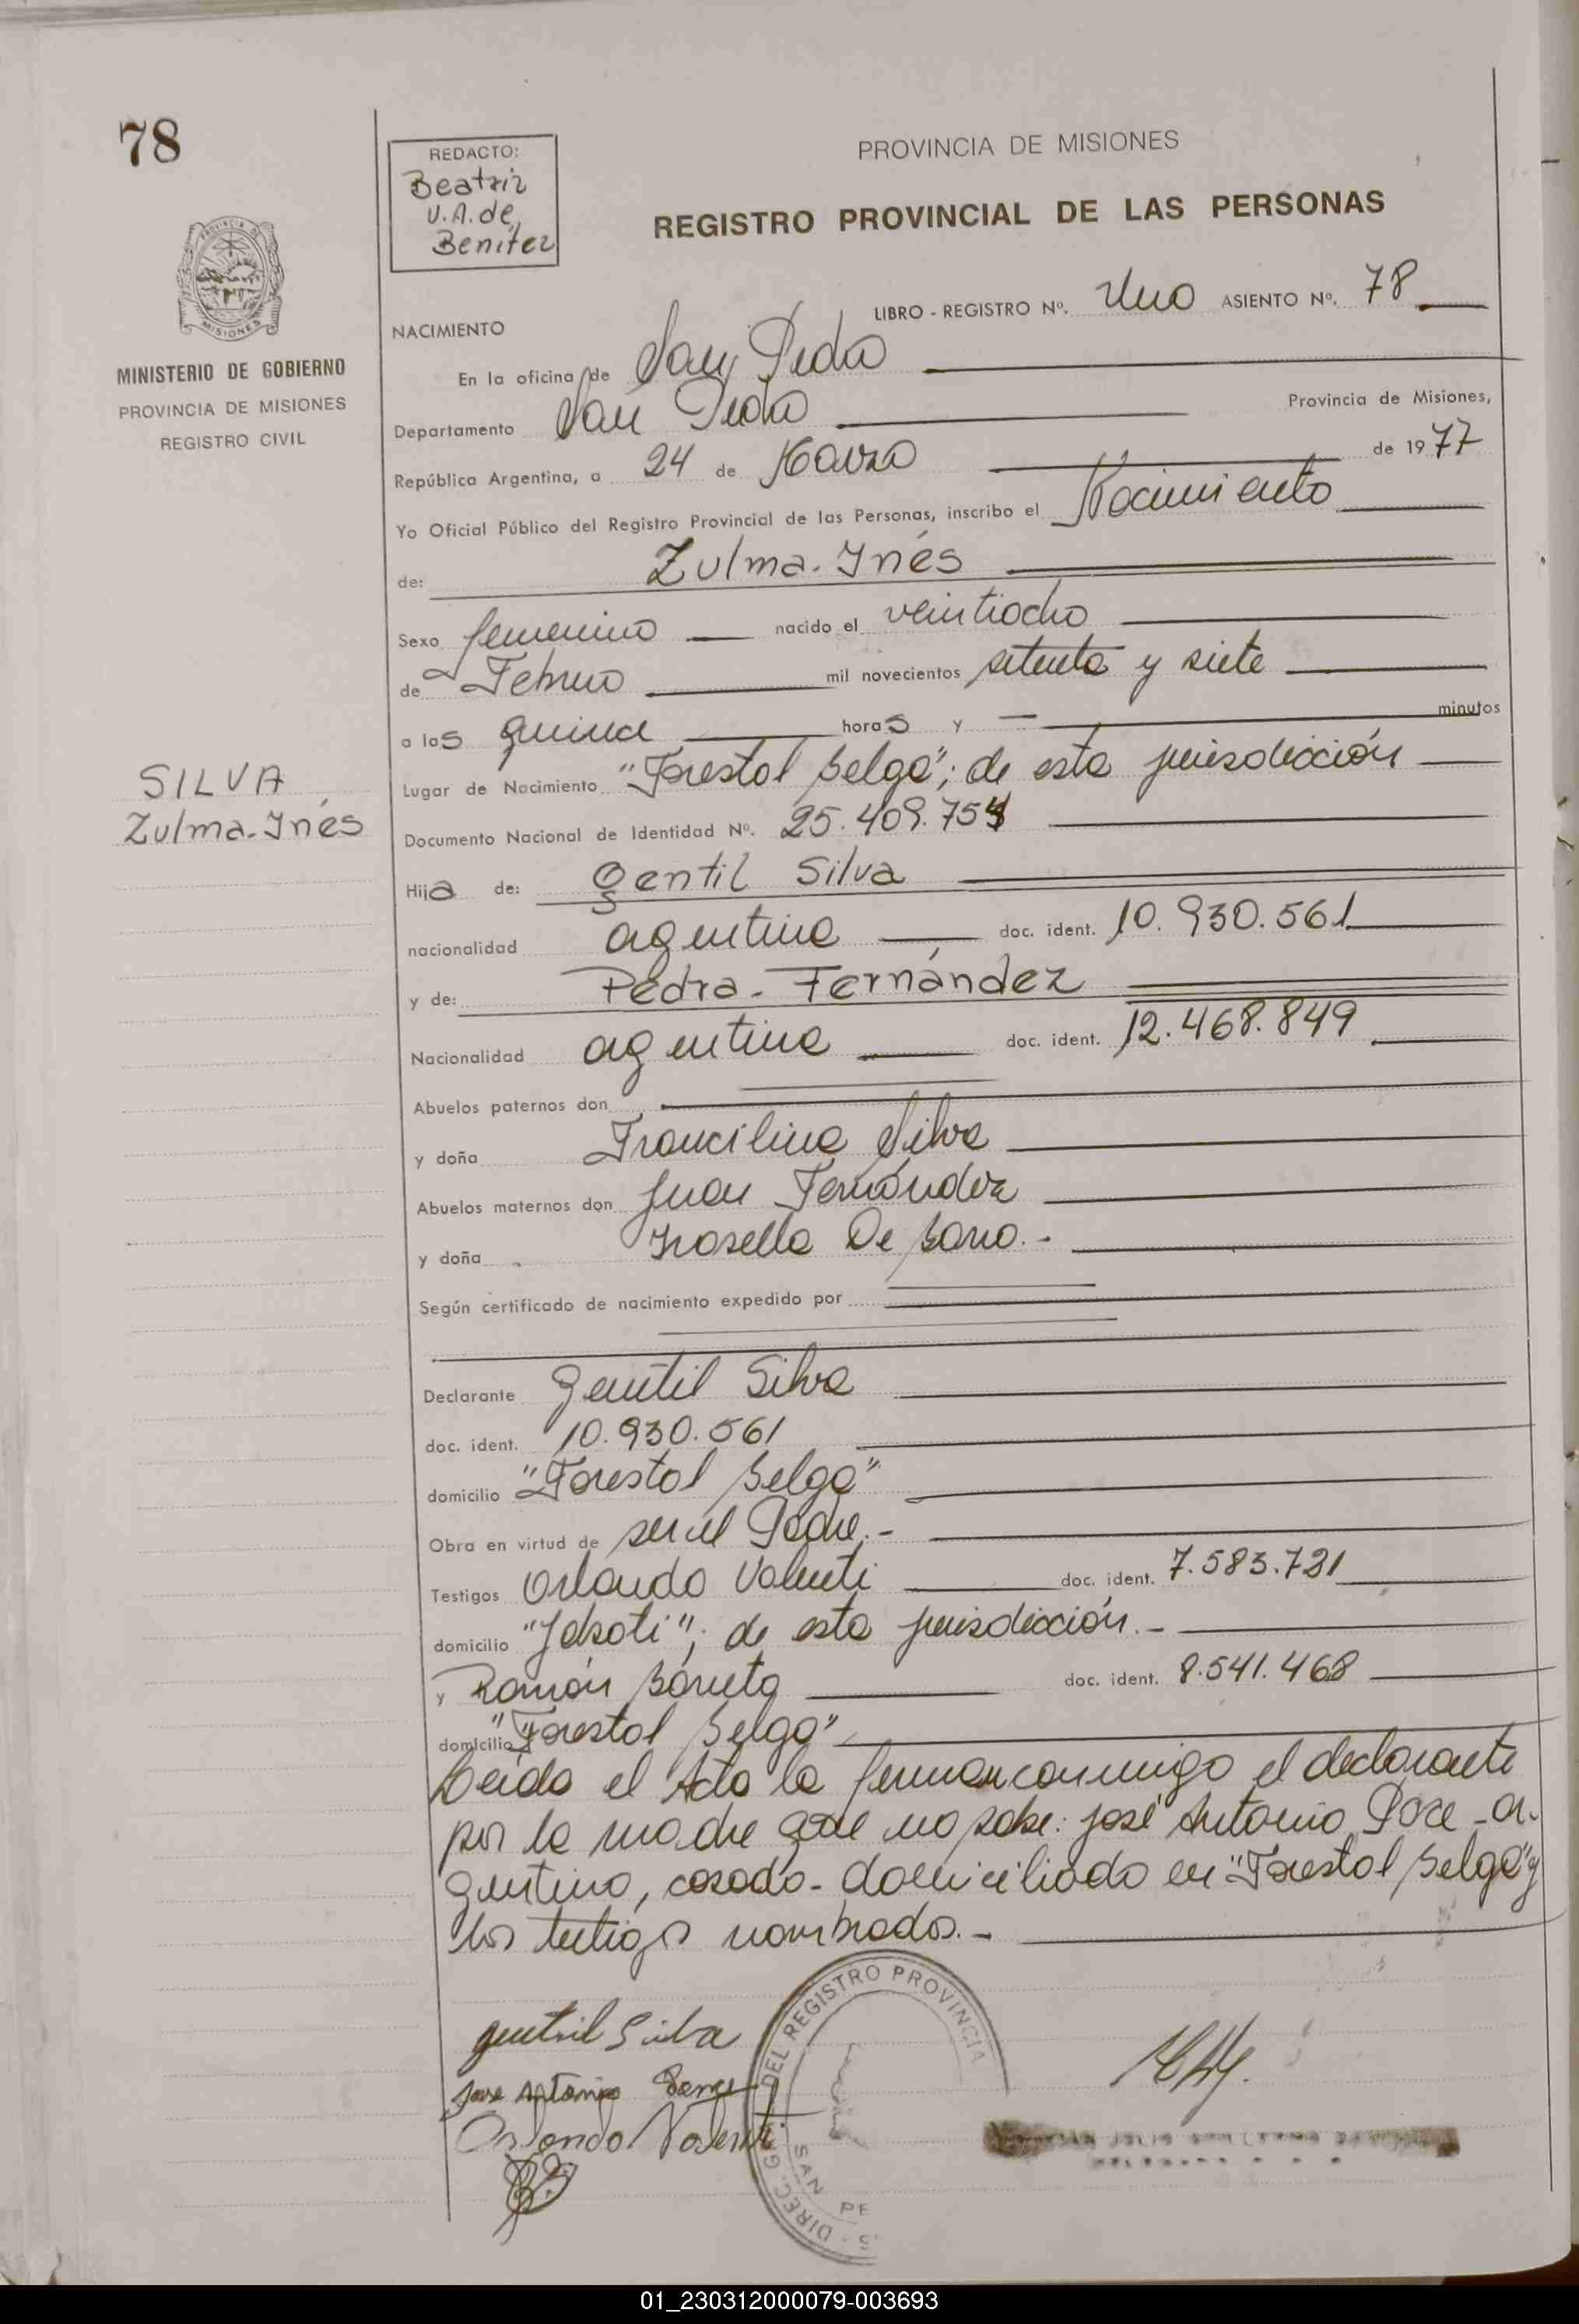 78
REDACTO:
Beatriz
V.A. de
Benitez
PROVINCIA DE MISIONES
REGISTRO PROVINCIAL DE LAS PERSONAS
MISIONES
MINISTERIO DE GOBIERNO
PROVINCIA DE MISIONES
REGISTRO CIVIL
LIBRO - REGISTRO Nº. Uno ASIENTO Nº. 78
NACIMIENTO
En la oficina de San Pedro
Departamento San Pedro Provincia de Misiones,
República Argentina, a 24 de Marzo de 1977
Yo Oficial Público del Registro Provincial de las Personas, inscribo el Nacimiento
de: Zulma-Ynés
Sexo femenino nacido el veintiocho
de Febrero mil novecientos setenta y siete
a las quince horas y — minutos
Lugar de Nacimiento "Forestal Belga"; de esta jurisdicción
SILVA
Zulma-Ynés
Documento Nacional de Identidad Nº. 25.409.754
Hija de: Gentil Silva
nacionalidad argentina doc. ident. 10.930.561
y de: Pedra-Fernández
Nacionalidad argentina doc. ident. 12.468.849
Abuelos paternos don
y doña Francilina Silva
Abuelos maternos don Juan Fernández
y doña De
Según certificado de nacimiento expedido por
Declarante Gentil Silva
doc. ident. 10.930.561
domicilio "Forestal Belga"
Obra en virtud de ser el Padre.-
Testigos Orlando Valenti doc. ident. 7.583.731
domicilio de esta jurisdicción.-
y Ramón doc. ident. 8.541.468
domicilio "Forestal Belga"
Leida el Acta la firman conmigo el declarante
por la madre que no sabe: José Antonio - ar-
gentino, casado- domiciliado en "Forestal Belga" y
los testigos nombrados.-
gentil Silva
Jose Antonio
Orlando Valenti
DIREC. G DEL REGISTRO PROVINCIA
SAN PE
01_230312000079-003693